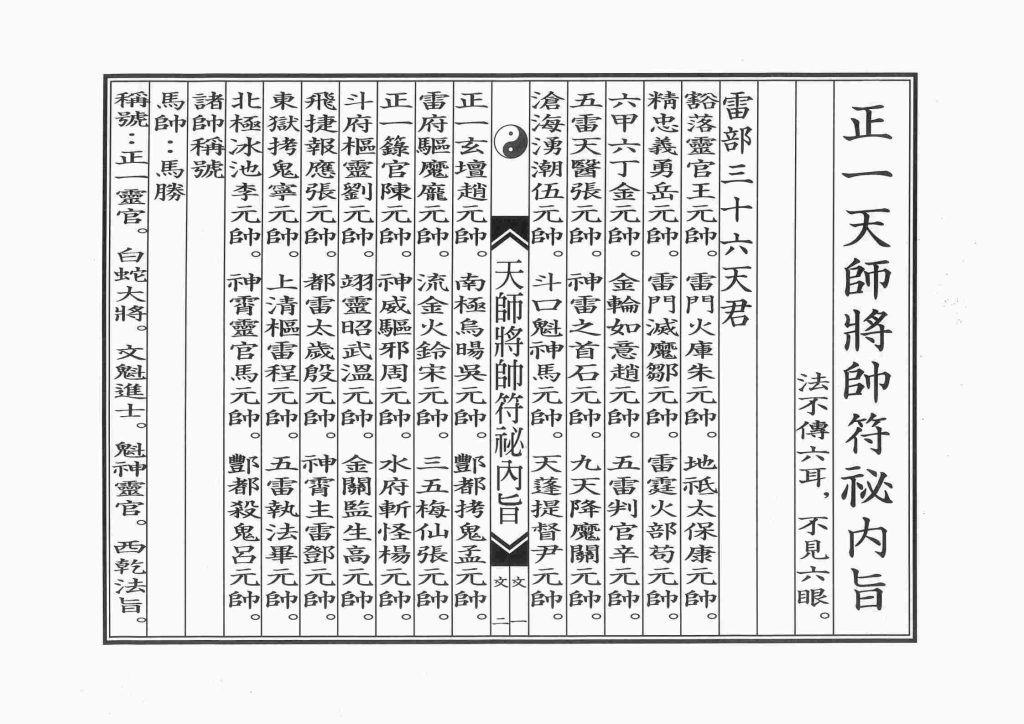 正一天師將帥符祕內旨
法不傳六耳，不見六眼。
雷部三十六天君
豁落靈官王元帥。雷門火庫朱元帥。地祇太保康元帥。
精忠義勇岳元帥。雷門滅魔鄒元帥。雷霆火部苟元帥。
六甲六丁金元帥。金輪如意趙元帥。五雷判官辛元帥。
五雷天醫張元帥。神雷之首石元帥。九天降魔關元帥。
滄海湧潮伍元帥。斗口魁神馬元帥。天蓬提督尹元帥。
天師將帥符祕內旨
文一
文二
正一玄壇趙元帥。南極烏暘吳元帥。酆都拷鬼孟元帥。
雷府驅魔龐元帥。流金火鈴宋元帥。三五梅仙張元帥。
正一籙官陳元帥。神威驅邪周元帥。水府斬怪楊元帥。
斗府樞靈劉元帥。翊靈昭武溫元帥。金闕監生高元帥。
飛捷報應張元帥。都雷太歲殷元帥。神霄主雷鄧元帥。
東獄拷鬼寧元帥。上清樞雷程元帥。五雷執法畢元帥。
北極冰池李元帥。神霄靈官馬元帥。酆都殺鬼呂元帥。
諸帥稱號
馬帥：馬勝
稱號：正一靈官。白蛇大將。文魁進士。魁神靈官。西乾法旨。